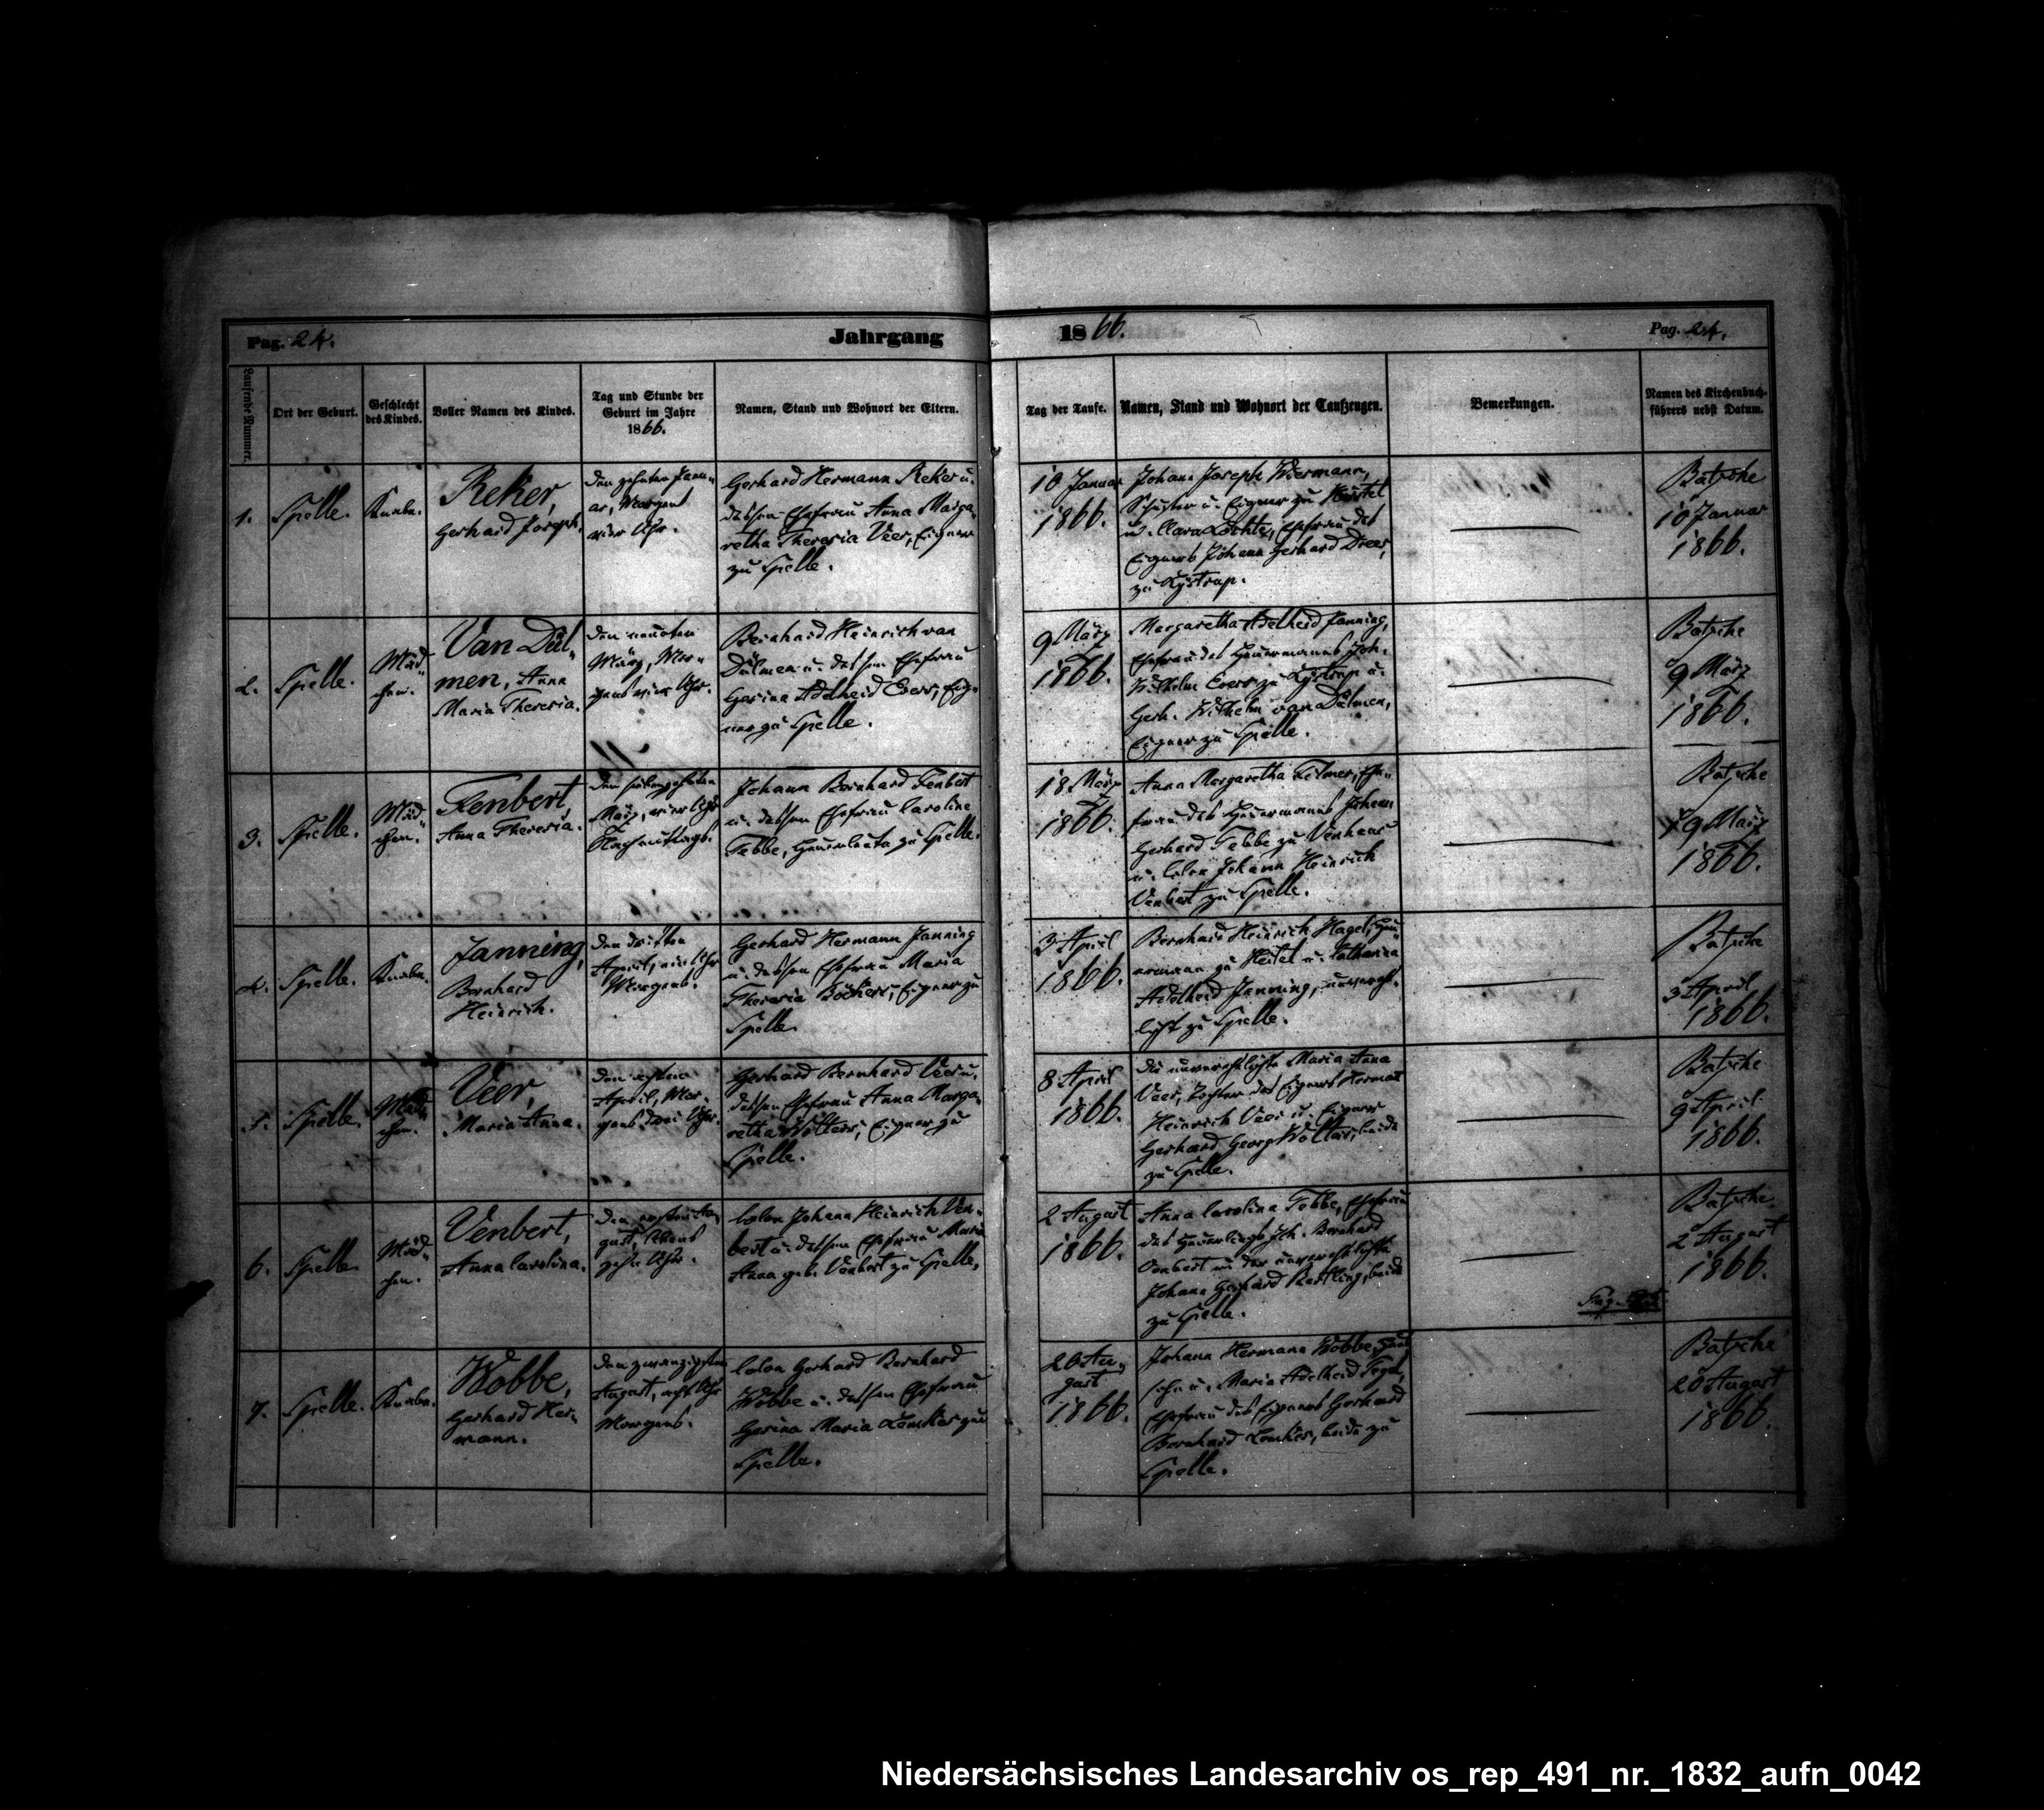 Pag. 24.
Jahrgang
1866.
Pag. 24.
Laufende Nummer.
Ort der Geburt.
Geschlecht
des Kindes.
Voller Namen des Kindes.
Tag und Stunde der
Geburt im Jahre
1866.
Namen, Stand und Wohnort der Eltern.
Tag der Taufe.
Namen, Stand und Wohnort der Taufzeugen.
Bemerkungen.
Namen des Kirchenbuch-
führers nebst Datum.
1.
Spelle.
Knabe.
Reker,
Gerhard Joseph.
den zehnten Janu-
ar, Morgens
vier Uhr.
Gerhard Hermann Reker u.
dessen Ehefrau Anna Marga-
retha Theresia Veer, Eigner
zu Spelle.
10 Januar
1866.
Johann Joseph Wiermann,
Schuster u. Eigner zu
u. Clara Lohte, Ehefrau des
Eigners Johann Gerhard Drees,
zu Lystrup.
Batsche
10 Januar
1866.
2.
Spelle.
Mäd-
chen.
Van Dül-
men, Anna
Maria Theresia.
den neunten
März, Mor-
gens vier Uhr.
Bernhard Heinrich van
Dülmen u. dessen Ehefrau
Gesina Adelheid Evers, Eig-
ner zu Spelle.
9 März
1866.
Margaretha Adelheid Janning,
Ehefrau des Heuermanns Joh.
Wilhelm Evers zu Lystrup u.
Gerh. Wilhelm van Dülmen,
Eigner zu Spelle.
Batsche
9 März
1866.
3.
Spelle.
Mäd-
chen.
Fenbert,
Anna Theresia.
den siebenzehnten
März, vier Uhr
Nachmittags.
Johann Bernhard Fenbert
u. dessen Ehefrau Caroline
Tebbe, Heuerleute zu Spelle.
18 März
1866.
Anna Margaretha Tilmer, Ehe-
frau des Heuermanns Johann
Gerhard Tebbe zu Venhaus
u. Colon Johann Heinrich
Venbert zu Spelle.
Batsche
19 März
1866.
4.
Spelle.
Knabe.
Janning,
Bernhard
Heinrich.
den dritten
April, ein Uhr
Morgens.
Gerhard Hermann Janning
u. dessen Ehefrau Maria
Theresia Böckers, Eigner zu
Spelle.
3 April
1866.
Bernhard Heinrich Hagel, Heu-
ermann zu Heitel u. Catharina
Adelheid Janning, unverehe-
licht zu Spelle.
Batsche
3 April
1866.
5.
Spelle.
Mäd-
chen.
Veer,
Maria Anna.
den achten
April, Mor-
gens drei Uhr.
Gerhard Bernhard Veer u.
dessen Ehefrau Anna Marga-
retha Wolters, Eigner zu
Spelle.
8 April
1866.
die unverehelichte Maria Anna
Veer, Tochter des Eigners Herman
Heinrich Veer u. Eigner
Gerhard Georg Wolters, beide
zu Spelle.
Batsche
9 April
1866.
6.
Spelle.
Mäd-
chen.
Venbert,
Anna Carolina.
den ersten Au-
gust, Abends
zehn Uhr.
Colon Johann Heinrich Ven-
bert u. dessen Ehefrau Maria
Anna geb. Venbert zu Spelle,
2 August
1866.
Anna Carolina Tebbe, Ehefrau
des Heuerlings Joh. Bernhard
Venbert und der unverehelichte
Johann Gerhard Rertling, beide
zu Spelle.
Batsche
2 August
1866.
7.
Spelle.
Knabe.
Wobbe,
Gerhard Her-
mann.
den zwanzigsten
August, acht Uhr
Morgens.
Colon Gerhard Bernhard
Wobbe u. dessen Ehefrau
Gesina Maria Lemker zu
Spelle.
20 Au-
gust
1866.
Johann Hermann Wobbe,
u. Maria Adelheid
Ehefrau des Eigners Gerhard
Bernhard Lemker, beide zu
Spelle.
Batsche
20 August
1866.
Niedersächsisches Landesarchiv os_rep_491_nr._1832_aufn_0042